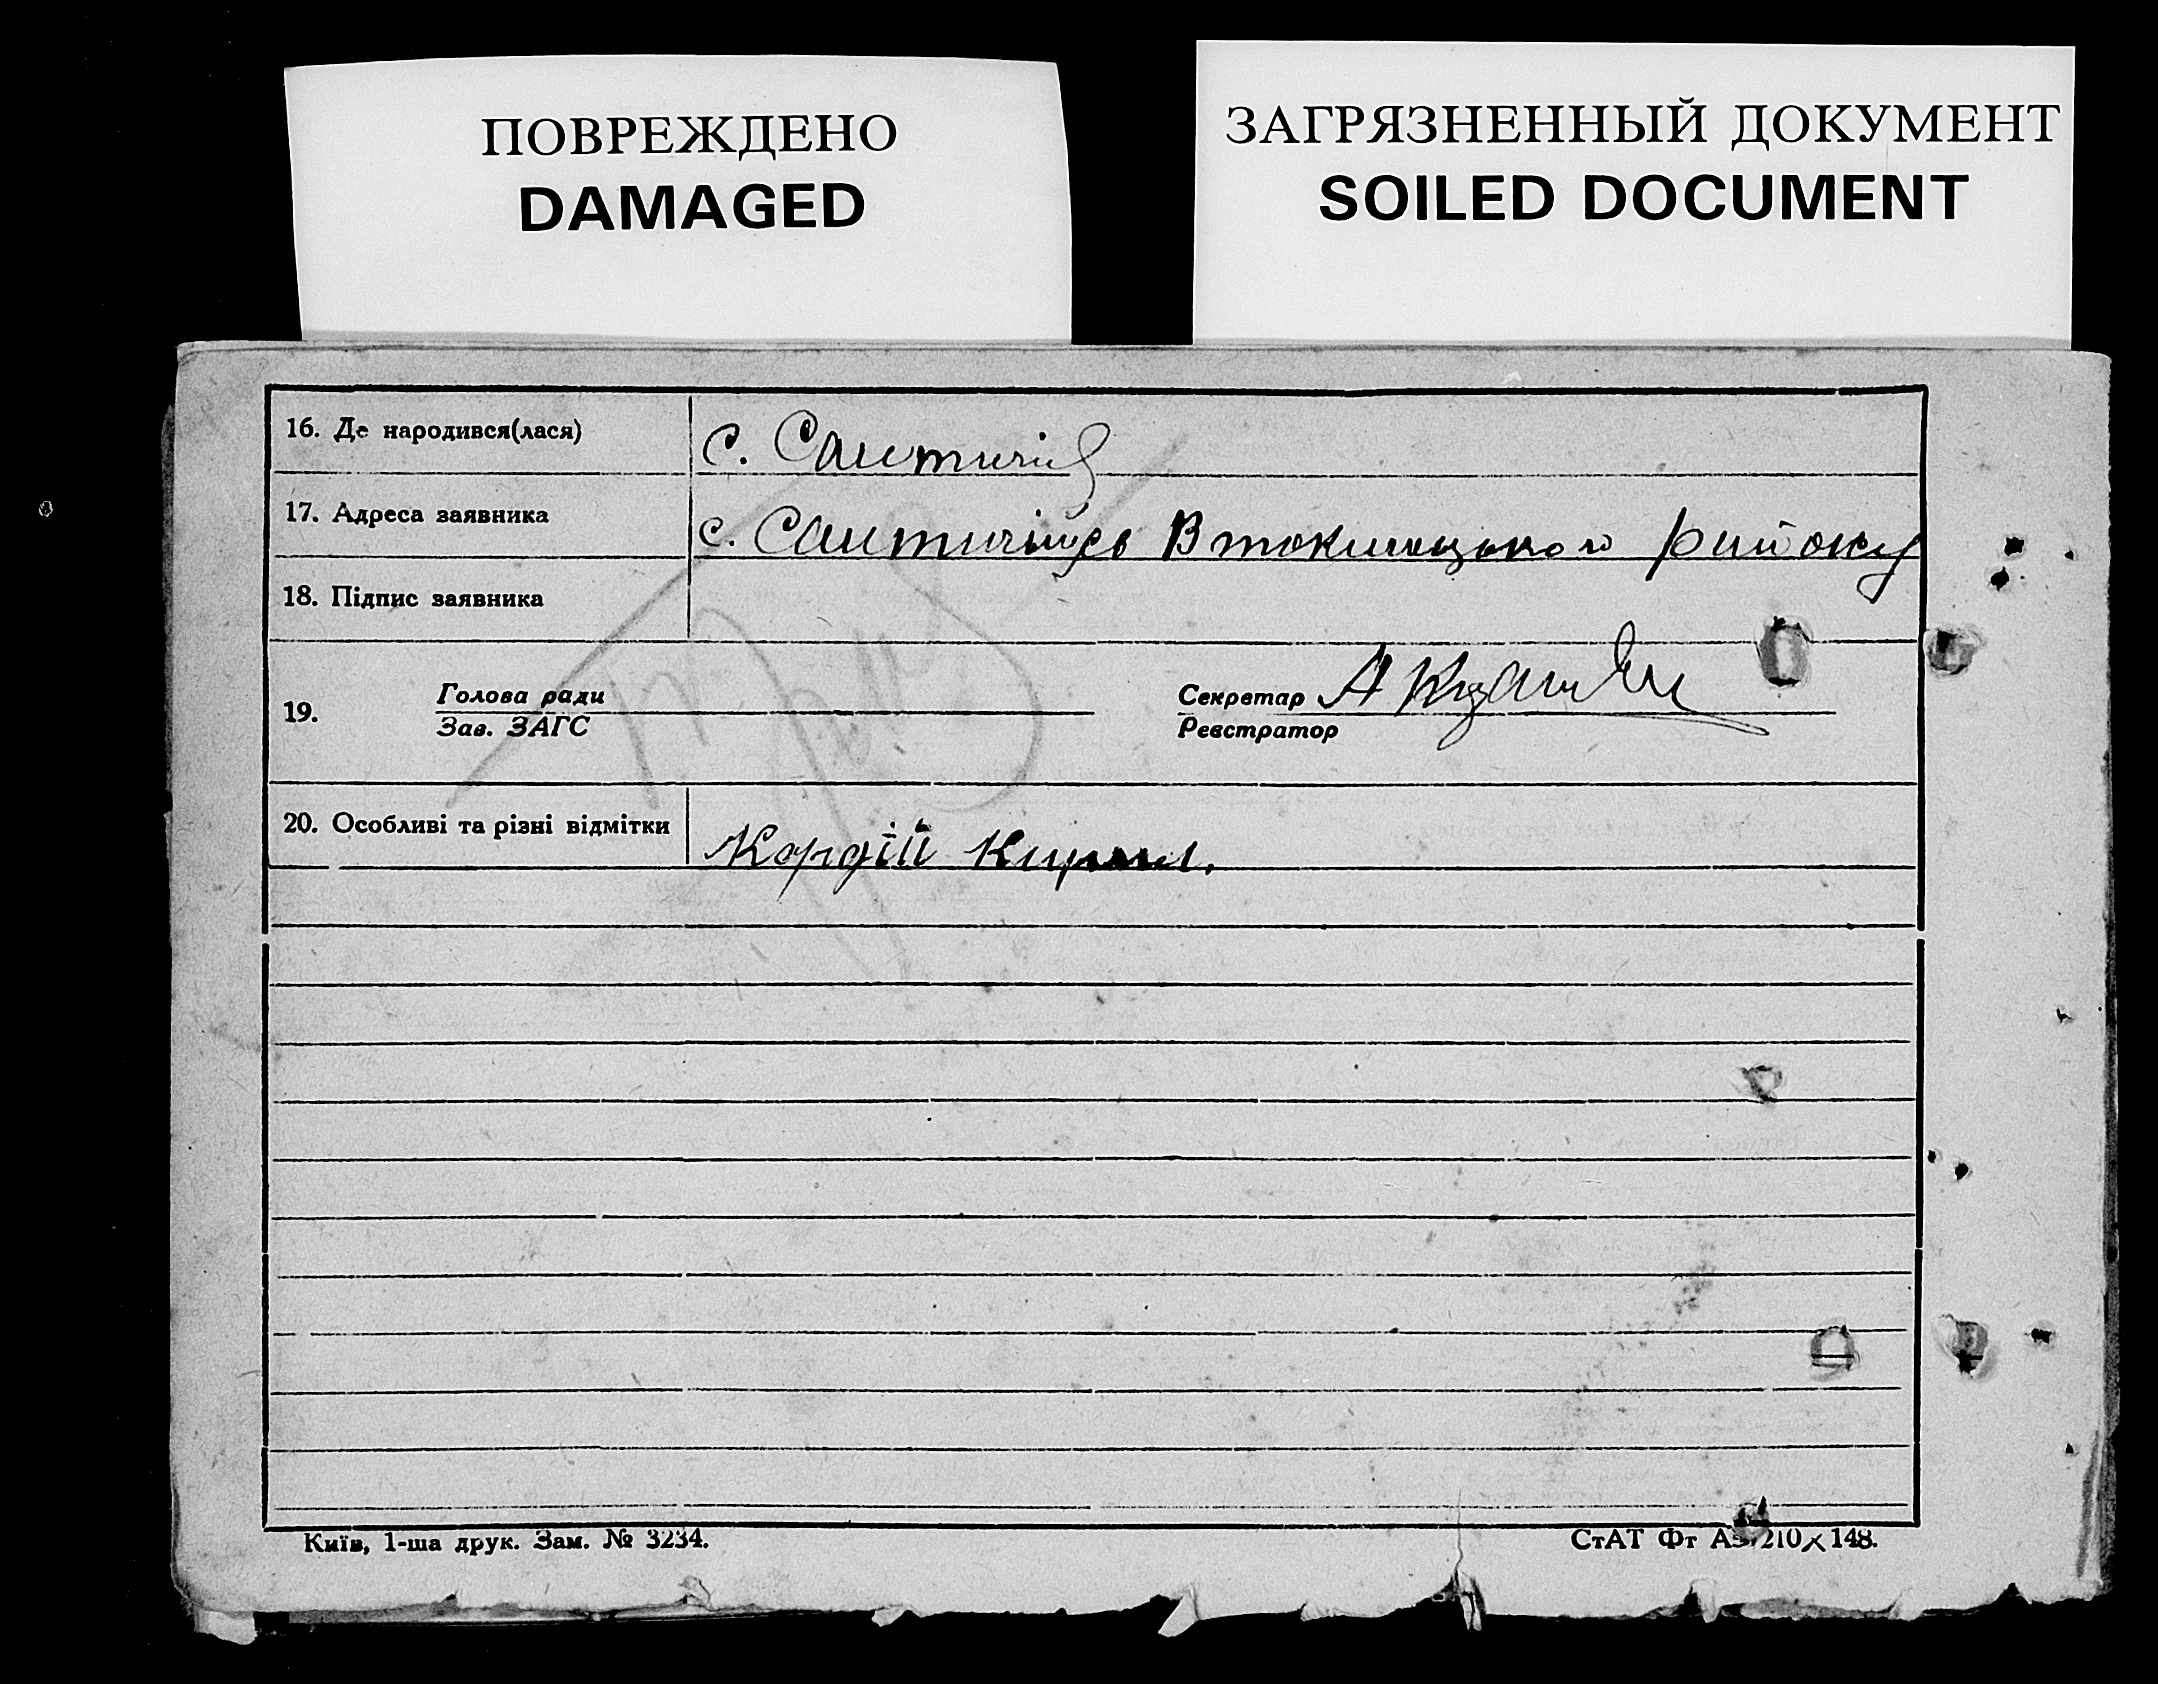 ПОВРЕЖДЕНО
DAMAGED
ЗАГРЯЗНЕННЫЙ ДОКУМЕНТ
SOILED DOCUMENT
16. Де народився(лася)
с.
17. Адреса заявника
с. району
18. Підпис заявника
19.
Голова ради
Зав. ЗАГС
Секретар А
Реєстратор
20. Особливі та різні відмітки
Кордій
Київ, 1-ша друк. Зам. № 3234.
СтАТ Фт А5 210×148.